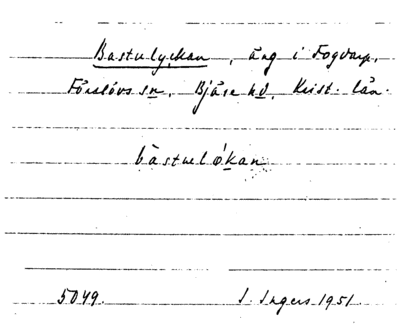 Bastulyckan, äng i Fogdarp,
Förslövs sn, Bjäre hd, Krist. län.
bàstuló̀kan
5049. I. Ingers 1951.